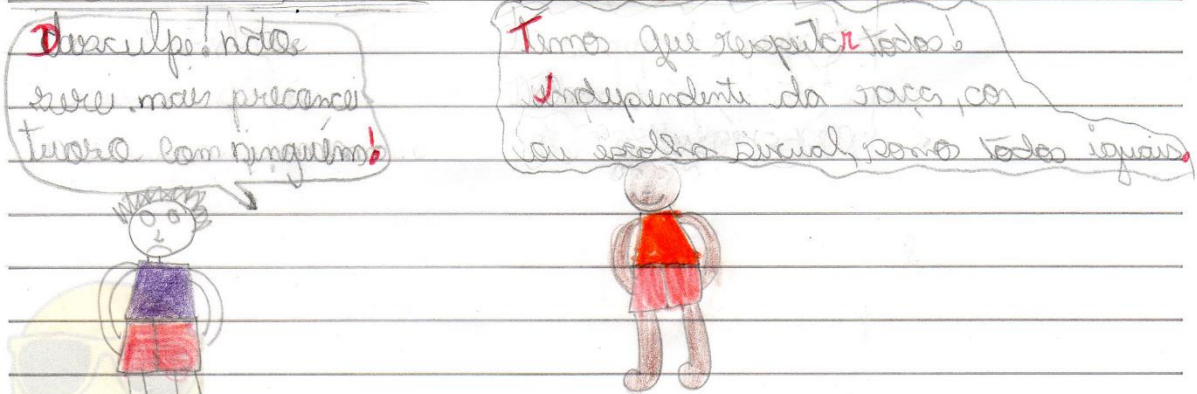 Desculpe! não
sere mais preconcei
tuoso com ninguém!
Temos que respeitar todos!
Independente da raça, cor
ou escolha sixual, somos todos iguais.